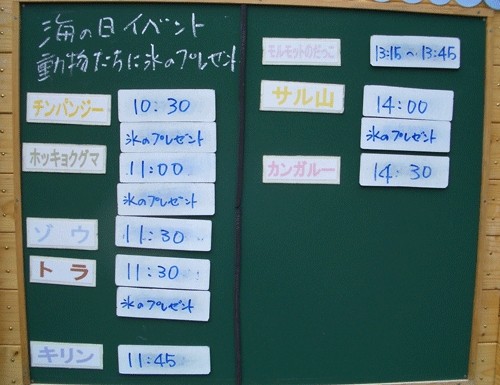 海の日イベント
動物たちに氷のプレゼント
チンパンジー 10:30
氷のプレゼント
ホッキョクグマ 11:00
氷のプレゼント
ゾウ 11:30
トラ 11:30
氷のプレゼント
キリン 11:45
モルモットのだっこ 13:15～13:45
サル山 14:00
氷のプレゼント
カンガルー 14:30